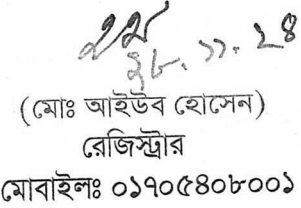 ২৮.১১.২৪
(মোঃ আইউব হোসেন)
রেজিস্ট্রার
মোবাইলঃ ০১৭০৫৪০৮০০১